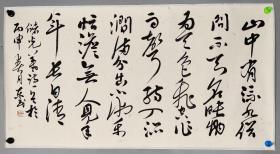 山中有流水借
问不知名映地
为天色飞空作
雨声转来深
涧满分出小池平
恬澹无人见年
年长自清
储光羲诗一首於
丙申春月